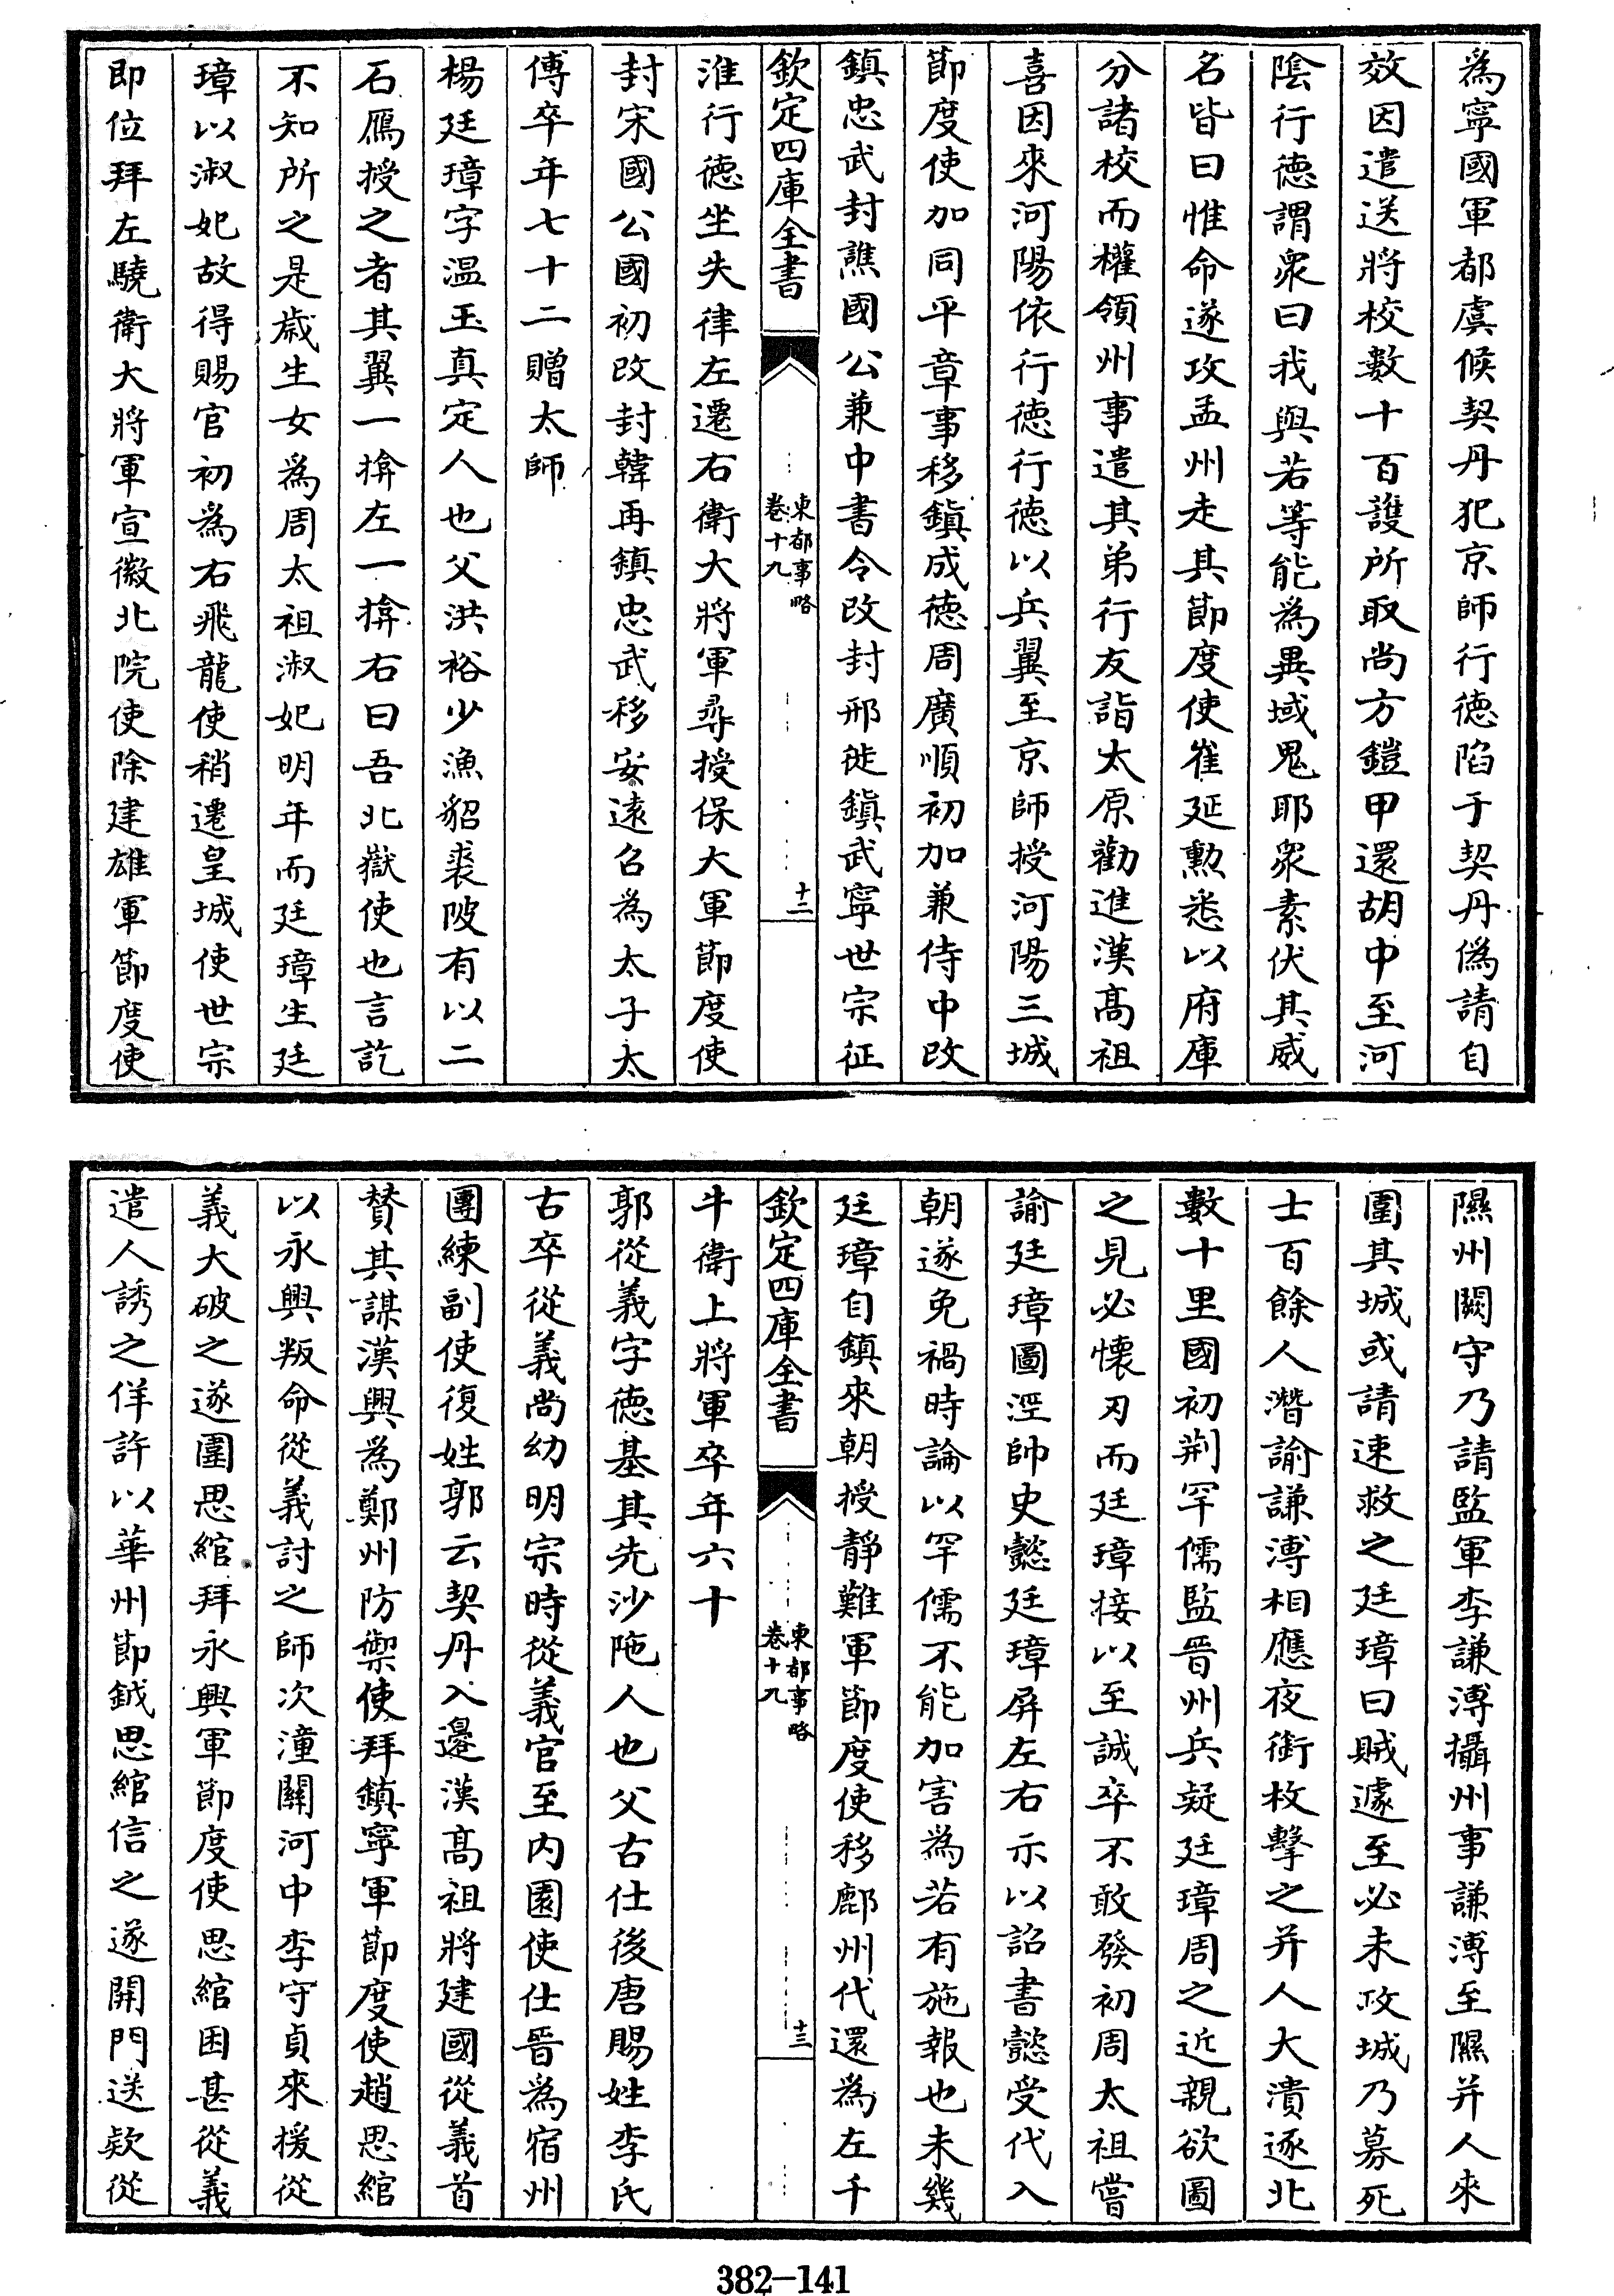 為寧國軍都虞候契丹犯京師行徳陷于契丹僞請自
效因遣送將校數十百護所取尚方鎧甲還胡中至河
隂行徳謂衆曰我與若等能為異域鬼耶衆素伏其威
名皆曰惟命遂攻孟州走其節度使崔延勲悉以府庫
分諸校而權領州事遣其弟行友詣太原勸進漢髙祖
喜因來河陽依行徳行徳以兵翼至京師授河陽三城
節度使加同平章事移鎮成徳周廣順初加兼侍中改
鎮忠武封譙國公兼中書令改封邢徙鎮武寧世宗征
欽定四庫全書
東都事略
卷十九
十二
淮行徳坐失律左遷右衛大將軍尋授保大軍節度使
封宋國公國初改封韓再鎮忠武移安逺召為太子太
傅卒年七十二贈太師
楊廷璋字温玉真定人也父洪裕少漁貂裘陂有以二
石鴈授之者其翼一掩左一掩右曰吾北嶽使也言訖
不知所之是歳生女為周太祖淑妃明年而廷璋生廷
璋以淑妃故得賜官初為右飛龍使稍遷皇城使世宗
即位拜左驍衛大將軍宣徽北院使除建雄軍節度使
隰州闕守乃請監軍李謙溥攝州事謙溥至隰并人來
圍其城或請速救之廷璋曰賊遽至必未攻城乃募死
士百餘人潛諭謙溥相應夜銜枚擊之并人大潰逐北
數十里國初荆罕儒監晋州兵疑廷璋周之近親欲圖
之見必懐刃而廷璋接以至誠卒不敢發初周太祖嘗
諭廷璋圖涇帥史懿廷璋屏左右示以詔書懿受代入
朝遂免禍時論以罕儒不能加害為若有施報也未幾
廷璋自鎮來朝授靜難軍節度使移鄜州代還為左千
欽定四庫全書
東都事略
卷十九
十三
牛衛上將軍卒年六十
郭從義字徳基其先沙陁人也父古仕後唐賜姓李氏
古卒從義尚幼明宗時從義官至内園使仕晋為宿州
團練副使復姓郭云契丹入邊漢髙祖將建國從義首
賛其謀漢興為鄭州防禦使拜鎮寧軍節度使趙思綰
以永興叛命從義討之師次潼關河中李守貞來援從
義大破之遂圍思綰拜永興軍節度使思綰困甚從義
遣人誘之佯許以華州節鉞思綰信之遂開門送欵從
382-141